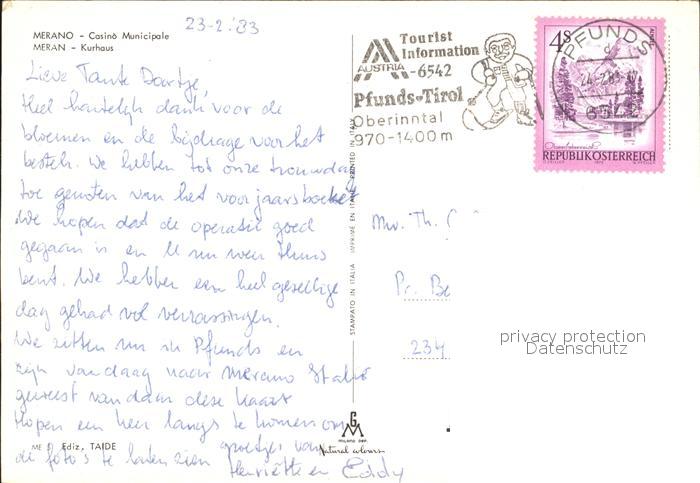 23-2-'83
MERANO - Casinò Municipale
MERAN - Kurhaus
Lieve Tante Doortje,
Heel hartelijk dank voor de
bloemen en de bijdrage voor het
bestek. We hebben tot onze trouwdag
toe genoten van het voorjaarsboeket
We hopen dat de operatie goed
gegaan is en U nu weer thuis
bent. We hebben een heel gezellige
dag gehad vol verrassingen.
We zitten nu in Pfunds en
zijn vandaag naar Merano Italië
geweest vandaar deze kaart
Hopen een keer langs te komen om
de foto's te laten zien
groetjes van
Henriëtte en Eddy
Ediz. TAIDE
STAMPATO IN ITALIA IMPRIMÉ EN ITALIE PRINTED IN ITALY
GM
MILANO DEP.
Natural colours
Tourist
Information
AUSTRIA -6542
Pfunds-Tirol
Oberinntal
970-1400m
4S
PFUNDS
6542
REPUBLIK ÖSTERREICH
Mw. Th.
Pr. Be
234
privacy protection
Datenschutz